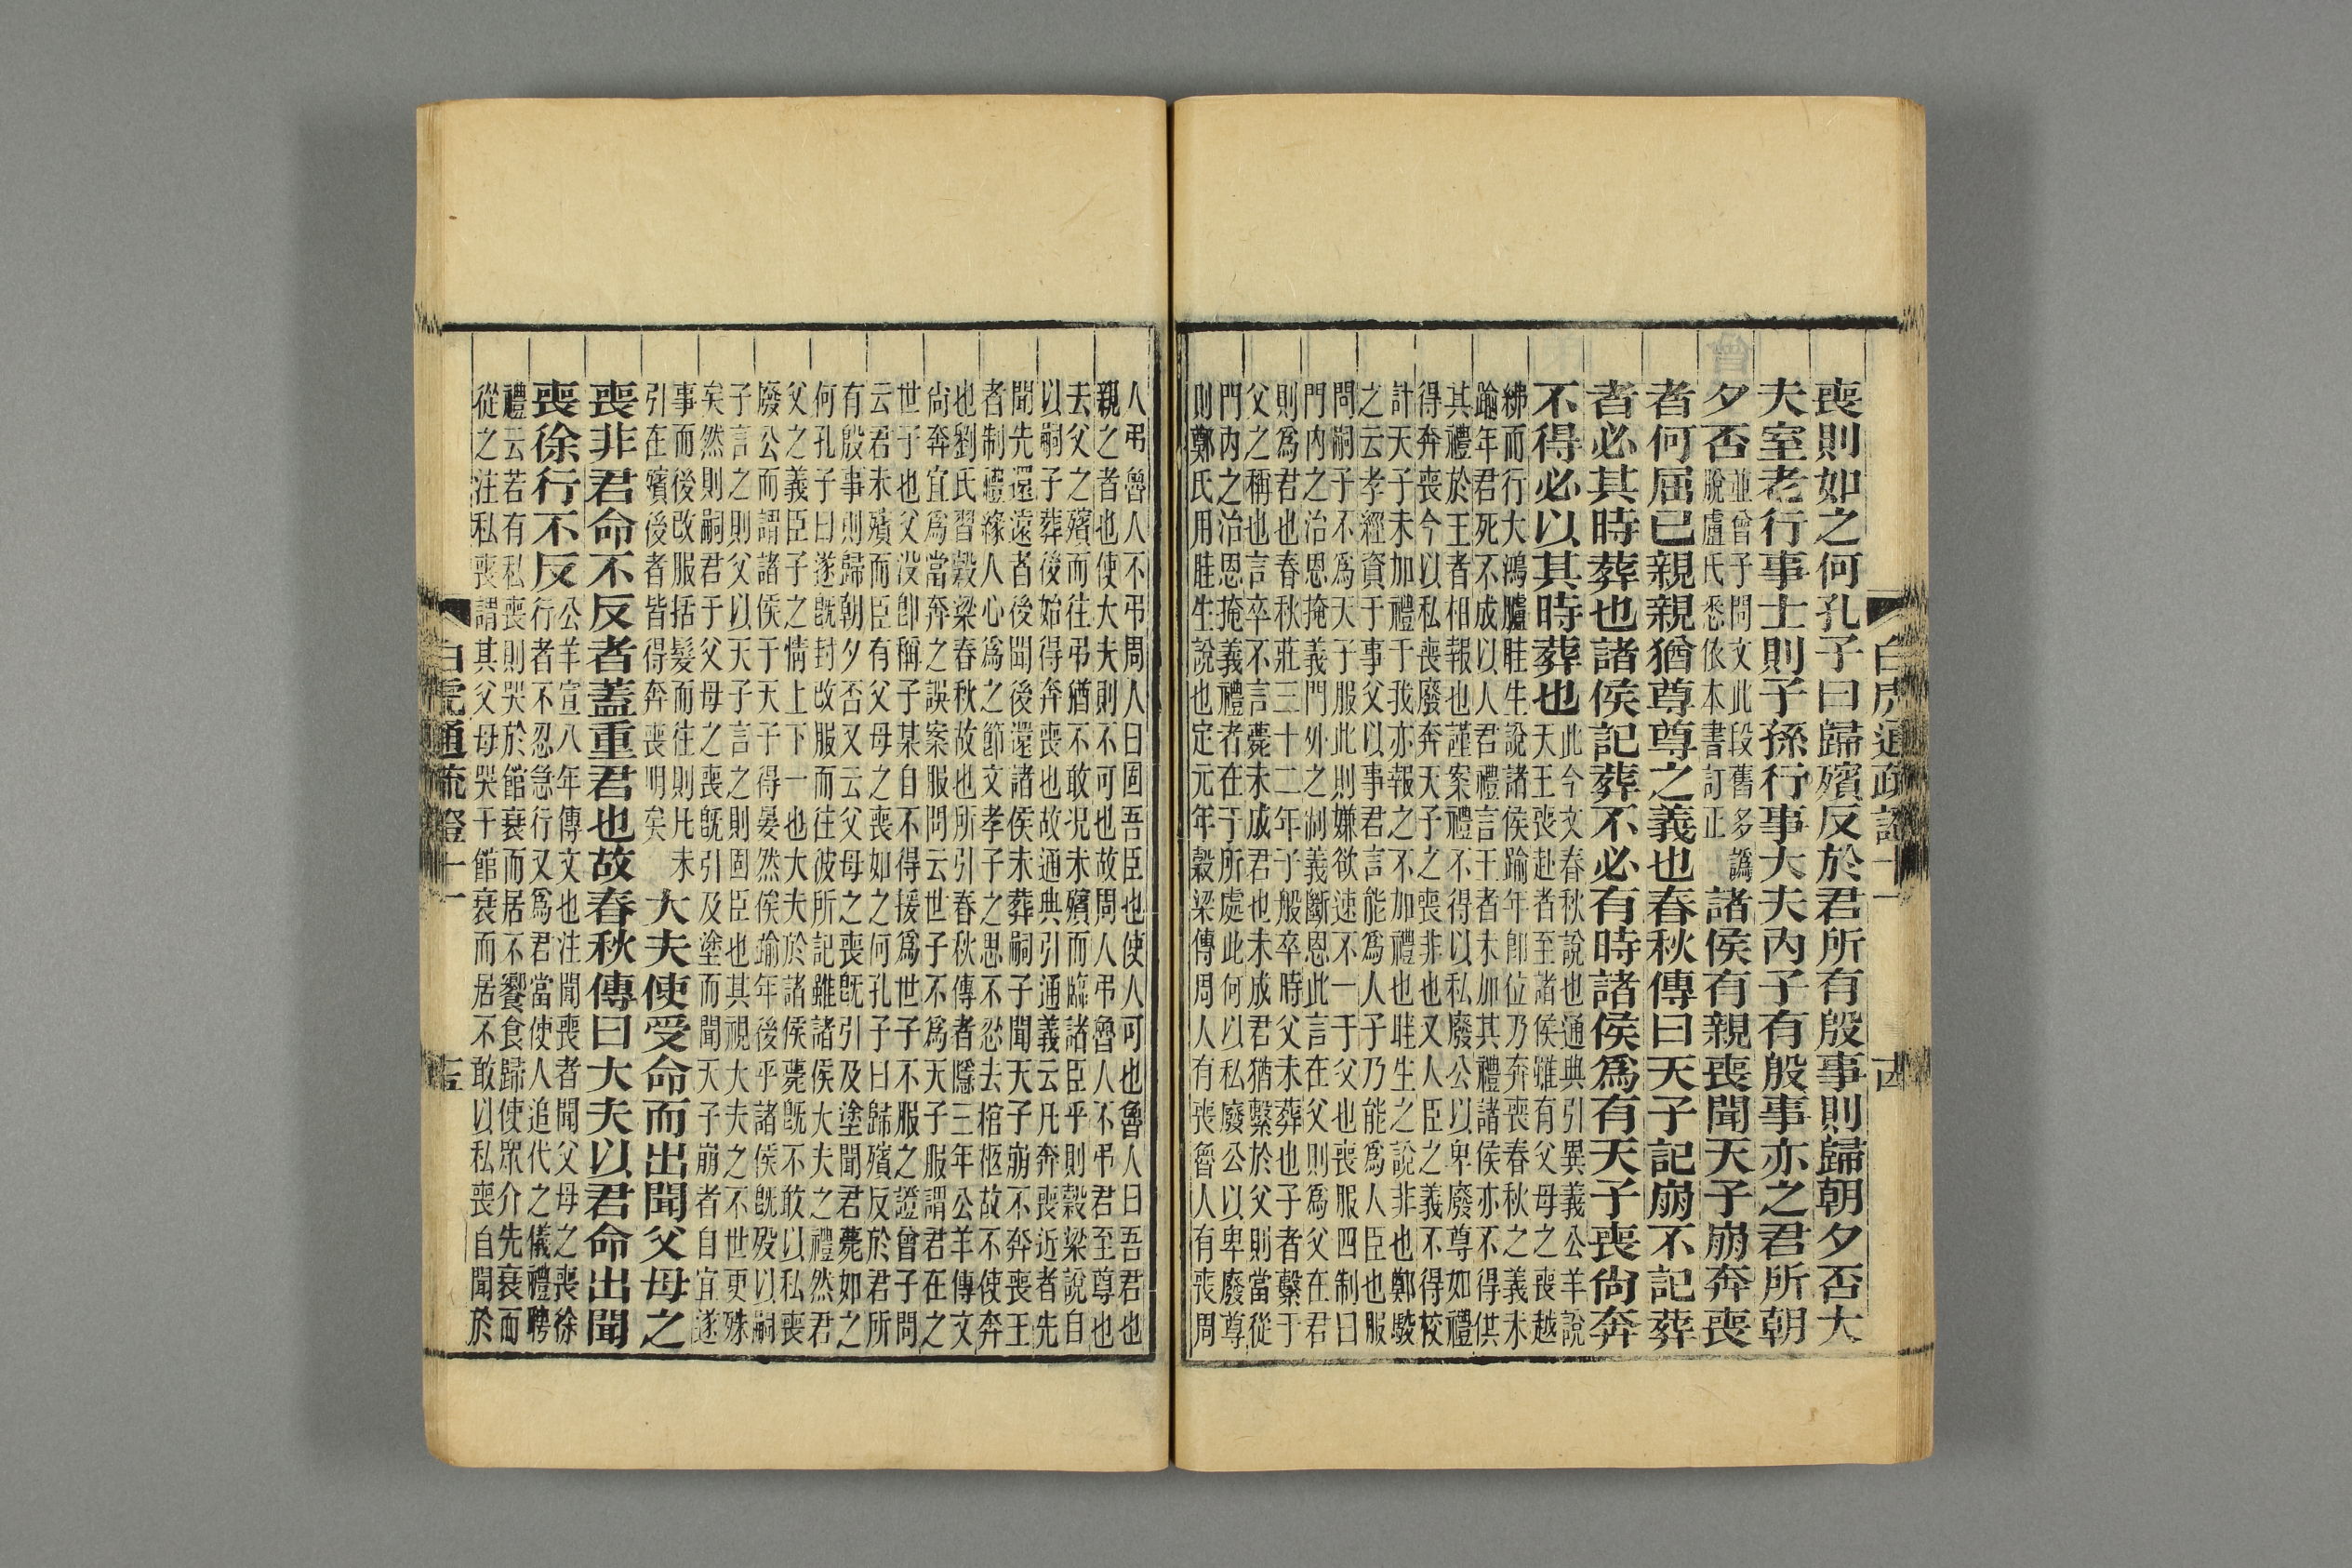 白虎通疏證十一
喪則如之何孔子曰歸殯反於君所有殷事則歸朝夕否大
夫室老行事士則子孫行事大夫內子有殷事亦之君所朝
夕否
並曾子問文此段舊多譌
脫盧氏悉依本書訂正
諸侯有親喪聞天子崩奔喪
者何屈己親親猶尊尊之義也春秋傳曰天子記崩不記葬
者必其時葬也諸侯記葬不必有時諸侯爲有天子喪尙奔
不得必以其時葬也
此今文春秋說也通典引異義公羊說
天王喪赴者至諸侯雖有父母之喪越
紼而行大鴻臚眭生說諸侯踰年卽位乃奔喪春秋之義未
踰年君死不成以人君禮言王者未加其禮諸侯亦不得供
其禮於王者相報也謹案禮不得以私廢公以卑廢尊如禮
得奔喪今以私喪廢奔天子之喪非也又人臣之義不得校
計天子未加禮于我亦報之不加禮也眭生之說非也鄭駮
之云孝經資于事父以事君言能爲人子乃能爲人臣也服
問嗣子不爲天子服此則嫌欲速不一于父也喪服四制曰
門內之治恩掩義門外之制義斷恩此言在父則爲父在君
則爲君也春秋莊三十二年子般卒時父未葬也子者繫于
父之稱也言卒不言薨未成君也未成君猶繫於父則當從
門內之治恩掩義禮者在于所處此何以私廢公以卑廢尊
則鄭氏用眭生說也定元年穀梁傳周人有喪魯人有喪周
人弔魯人不弔周人曰固吾臣也使人可也魯人曰吾君也
親之者也使大夫則不可也故周人弔魯人不弔君至尊也
去父之殯而往弔猶不敢况未殯而臨諸臣乎則穀梁說自
以嗣子葬後始得奔喪也故通典引通義云凡奔喪近者先
聞先還遠者後聞後還諸侯未葬嗣子聞天子崩不奔喪王
者制禮緣人心爲之節文孝子之思不忍去棺柩故不使奔
也劉氏習穀梁春秋故也所引春秋傳者隱三年公羊傳文
尙奔宜爲當奔之誤案服問云世子不爲天子服謂君在之
世子也父没卽稱子某自不得援爲世子不服之證曾子問
云君未殯而臣有父母之喪如之何孔子曰歸殯反於君所
有殷事則歸朝夕否又云父母之喪既引及塗聞君薨如之
何孔子曰遂既封改服而往彼所記雖諸侯大夫之禮然君
父之義臣子之情上下一也大夫於諸侯薨既不敢以私喪
廢公而謂諸侯于天子得晏然俟踰年後乎諸侯既歿以嗣
子言之則父以天子言之則固臣也其視大夫之不世更殊
矣然則嗣君于父母之喪既引及塗而聞天子崩者自宜遂
事而後改服括髮而往則凡未
引在殯後者皆得奔喪明矣
大夫使受命而出聞父母之
喪非君命不反者蓋重君也故春秋傳曰大夫以君命出聞
喪徐行不反
公羊宣八年傳文也注聞喪者聞父母之喪徐
行者不忍急行又爲君當使人追代之儀禮聘
禮云若有私喪則哭於館衰而居不饗食歸使眾介先衰而
從之注私喪謂其父母哭于館衰而居不敢以私喪自聞於
白虎通疏證十一